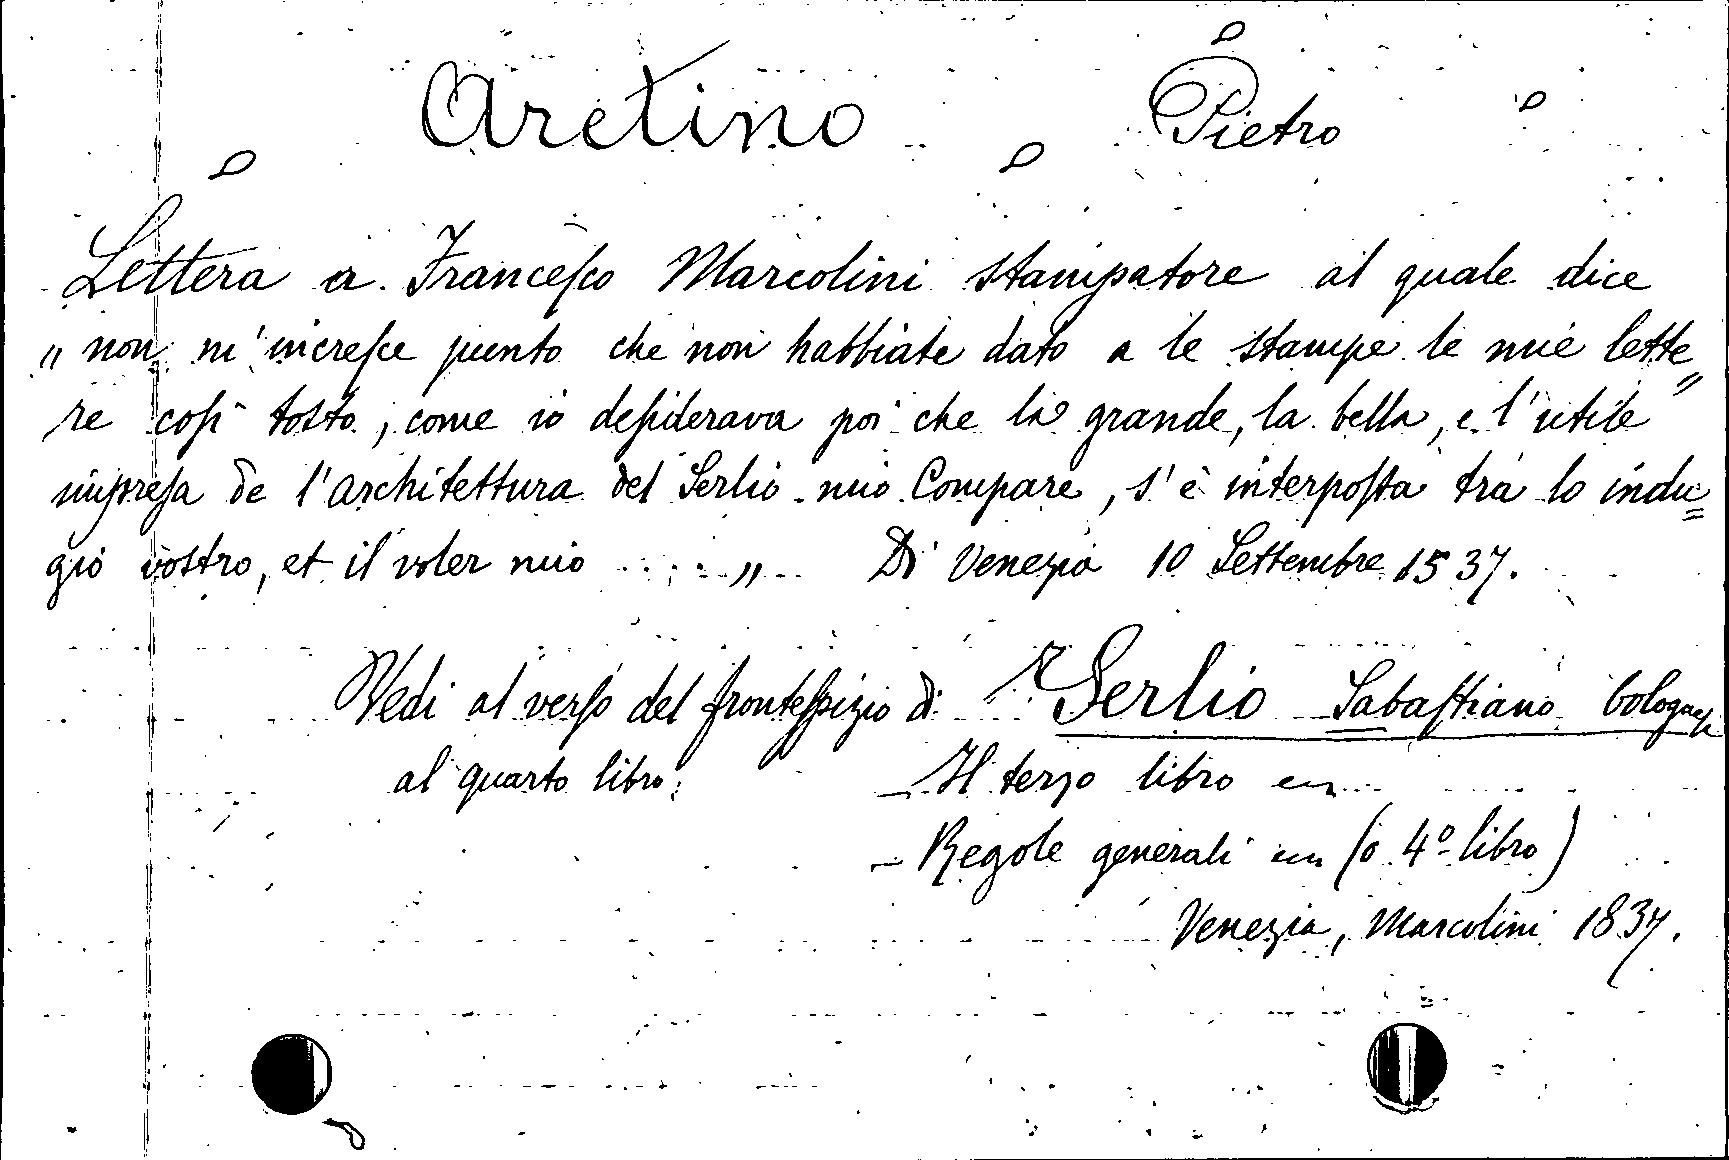 Aretino Pietro
Lettera a Franceſco Marcolini stampatore al quale dice
„ non m'increſce punto che non habbiate dato a le stampe le mie lette„
re coſi tosto, come io deſiderava poi che la grande, la bella, e l'utile
impreſa de l'architettura del Serlio mio Compare, s'è interpoſta tra lo indu=
gio vostro, et il voler mio .... „ Di Venezia 10 Settembre 1537.
Vedi al verſo del fronteſpizio di Serlio Sabaſtiano bologneſe
al quarto libro. – Il terzo libro ecc
– Regole generali ecc (o 4º libro)
Venezia, Marcolini 1837.